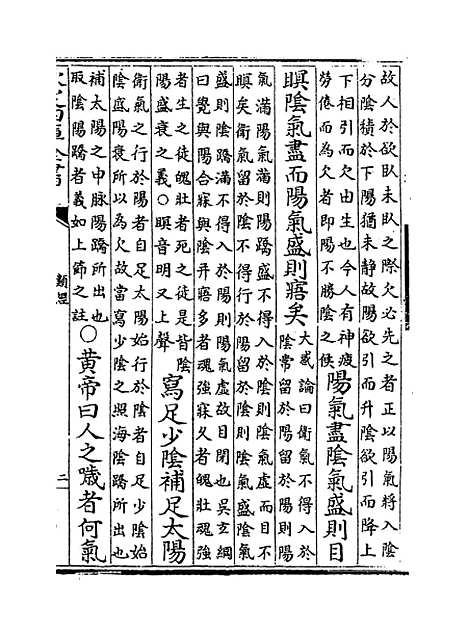 故人於欲臥未臥之際欠必先之者正以陽氣將入陰
分陰積於下陽猶未静故陽欲引而升陰欲引而降上
下相引而欠由生也今人有神疲
勞倦而為欠者即陽不勝陰之候
陽氣盡陰氣盛則目
瞑陰氣盡而陽氣盛則寤矣
大惑論曰衛氣不得入於
陰常留於陽留於陽則陽
氣滿陽氣滿則陽蹻盛不得入於陰則陰氣虛而目不
瞑矣衛氣留於陰不得行於陽留於陰則陰氣盛陰氣
盛則陰蹻滿不得入於陽則陽氣虛故目閉也吳玄綱
曰覺與陽合寐與陰并寤多者魂強寐久者魄壯魂強
者生之徒魄壯者死之徒是皆陰
陽盛衰之義○瞑音明又上聲
寫足少陰補足太陽
衛氣之行於陽者自足太陽始行於陰者自足少陰始
陰盛陽衰所以為欠故當寫少陰之照海陰蹻所出也
補太陽之申脉陽蹻所出也
取陰陽蹻者義如上節之註
○黃帝曰人之噦者何氣
類經
二